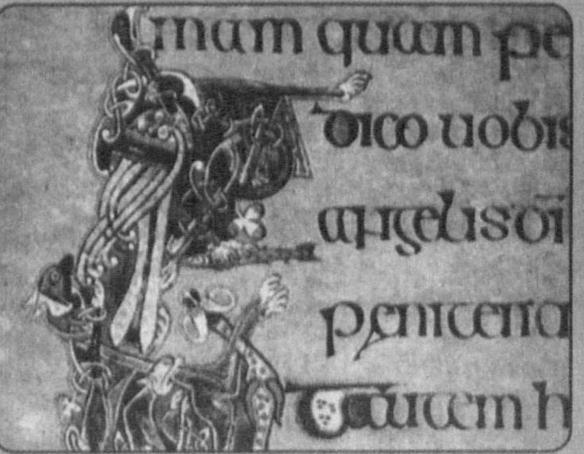 mam quam pe
dico uobis
angelis di
peniten
autem h